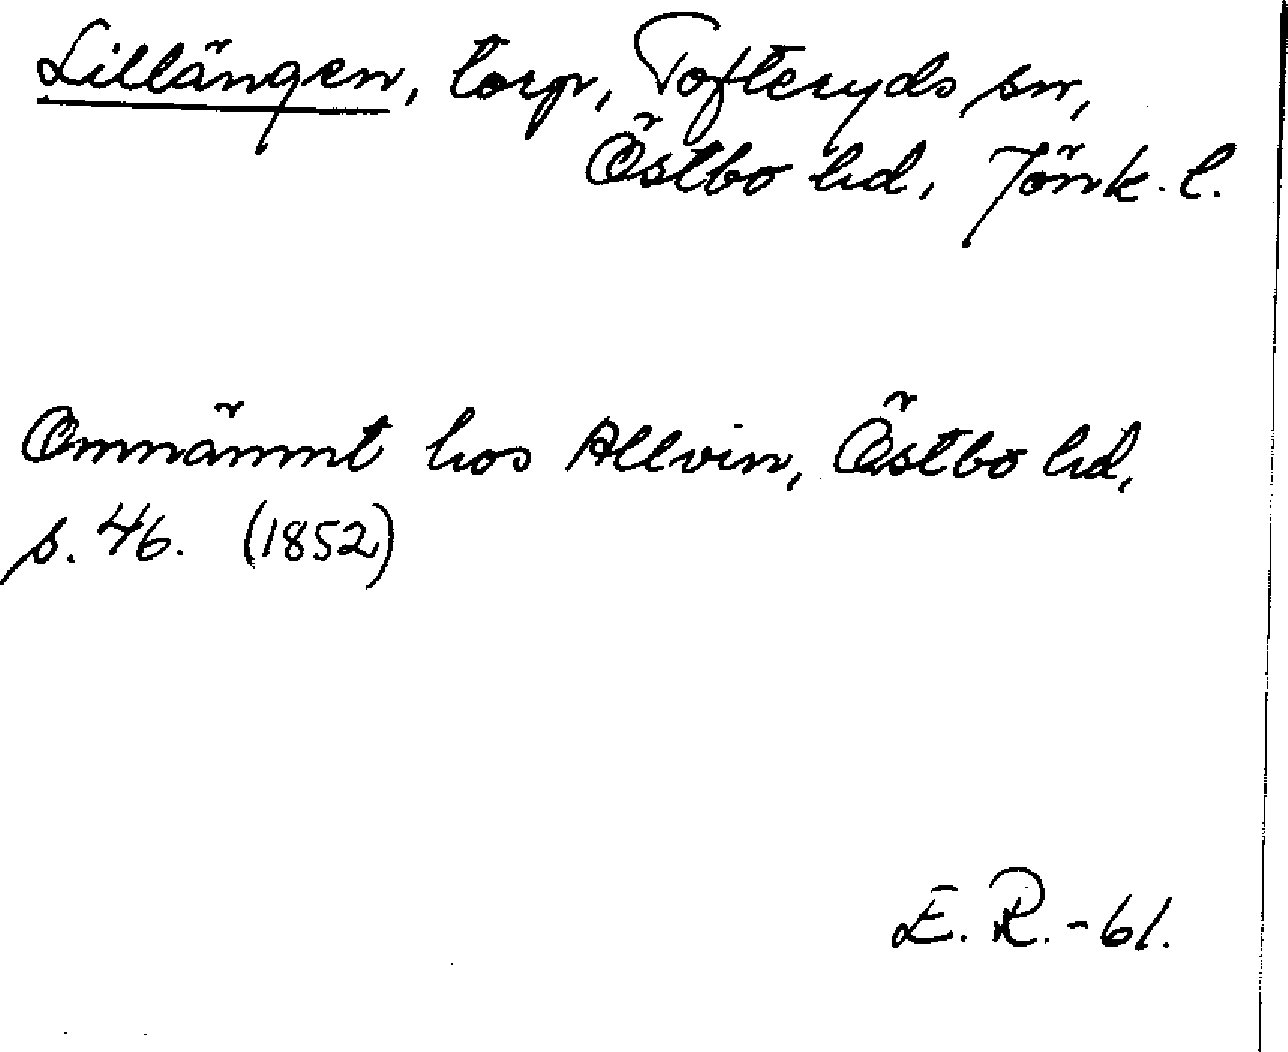 Lillängen, torp, Tofteryds sn,
Östbo hd, Jönk. l.
Omnämnt hos Allvin, Östbo hd,
s. 46. (1852)
E. R. - 61.